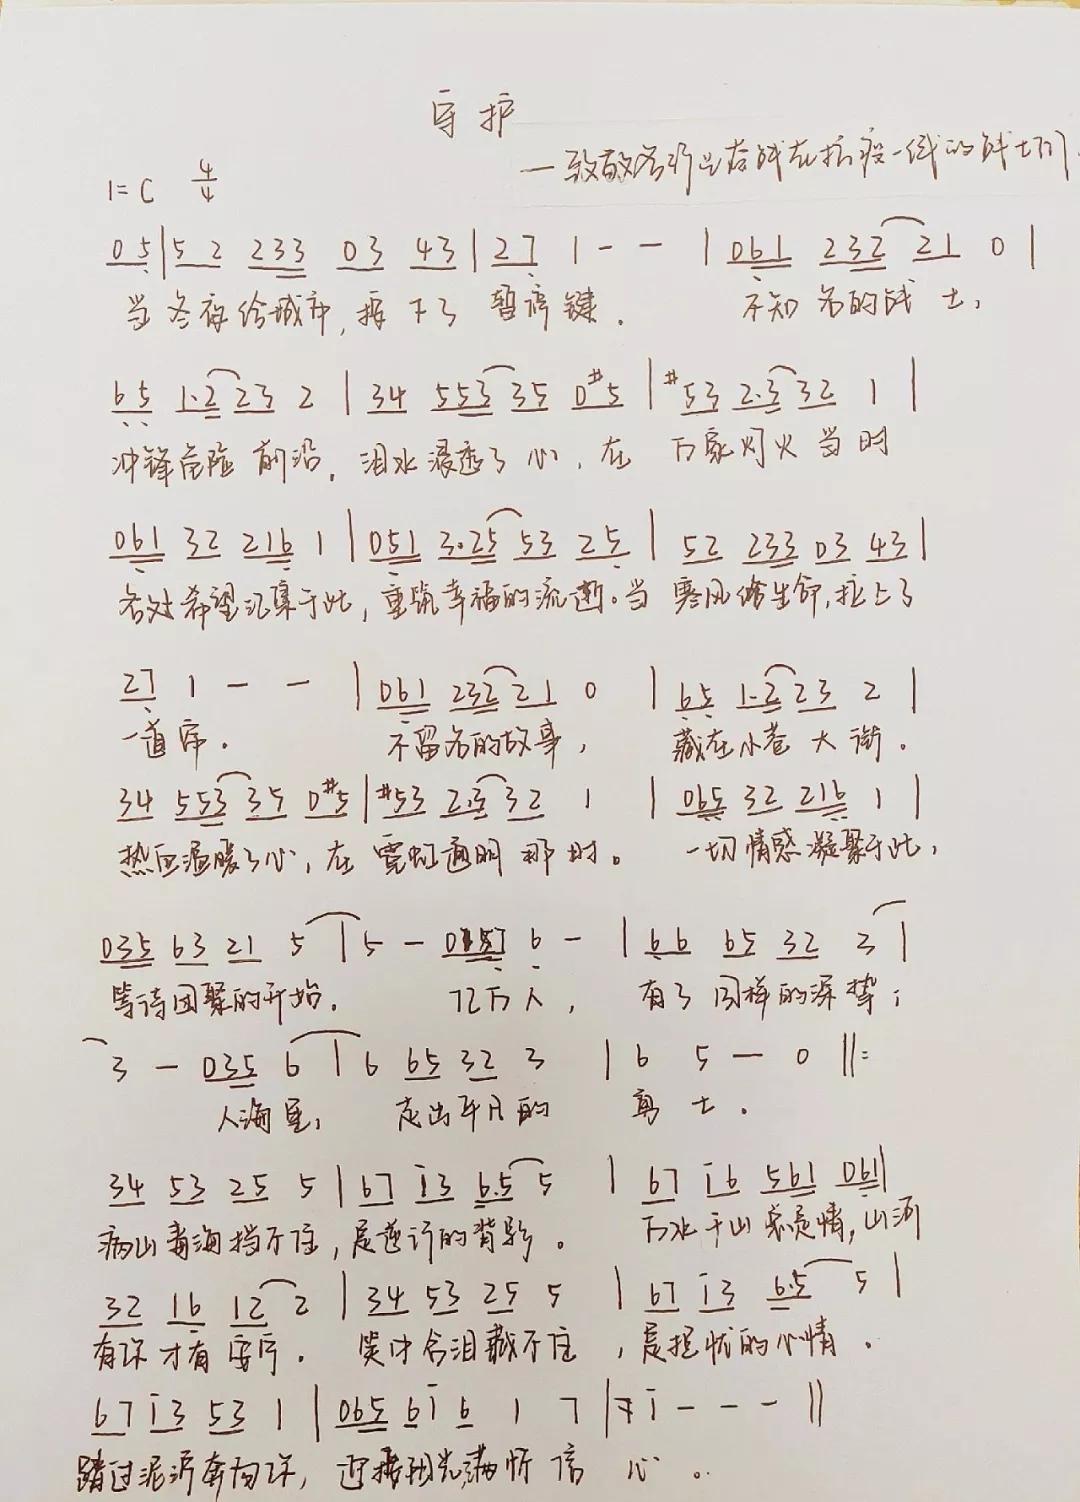 守护
—致敬各行业奋战在抗疫一线的战士们
1=C 4/4
05|52 233 03 43|27 1 - - |061 232 21 0|
当冬夜给城市,按下了 暂停键. 不知名的战士,
65 1·2 23 2|34 553 35 0#5|#53 2·3 32 1|
冲锋危险前沿. 泪水浸透了心,在 万家灯火当时
061 32 216 1|051 3·25 53 25|52 233 03 43|
各处希望汇集于此,重筑幸福的流逝。当 寒风给生命,拉上了
27 1 - - |061 232 21 0 |65 1·2 23 2|
一道帘. 不留名的故事, 藏在小巷大街.
34 553 35 0#5|#53 2·3 32 1 |065 32 216 1|
热血温暖了心,在 霓虹通明那时。 一切情感凝聚于此,
035 63 21 5|5 - 6 - |66 65 32 3|
等待团聚的开始. 亿万人, 有了同样的深挚;
3 - 035 6|6 65 32 3 |6 5 - 0 ||:
人海里, 走出平凡的 勇士.
34 53 25 5|67 i3 6·5 5 |67 i6 561 061|
病山毒海挡不住,是逆行的背影. 万水千山总是情,山河
32 16 12 2|34 53 25 5 |67 i3 6·5 5|
有你才有安宁. 笑中含泪藏不住,是担忧的心情.
67 i3 53 1|065 6i 6 1 7|i - - - ||
踏过泥泞奔向你, 迎接阳光,满怀信心。